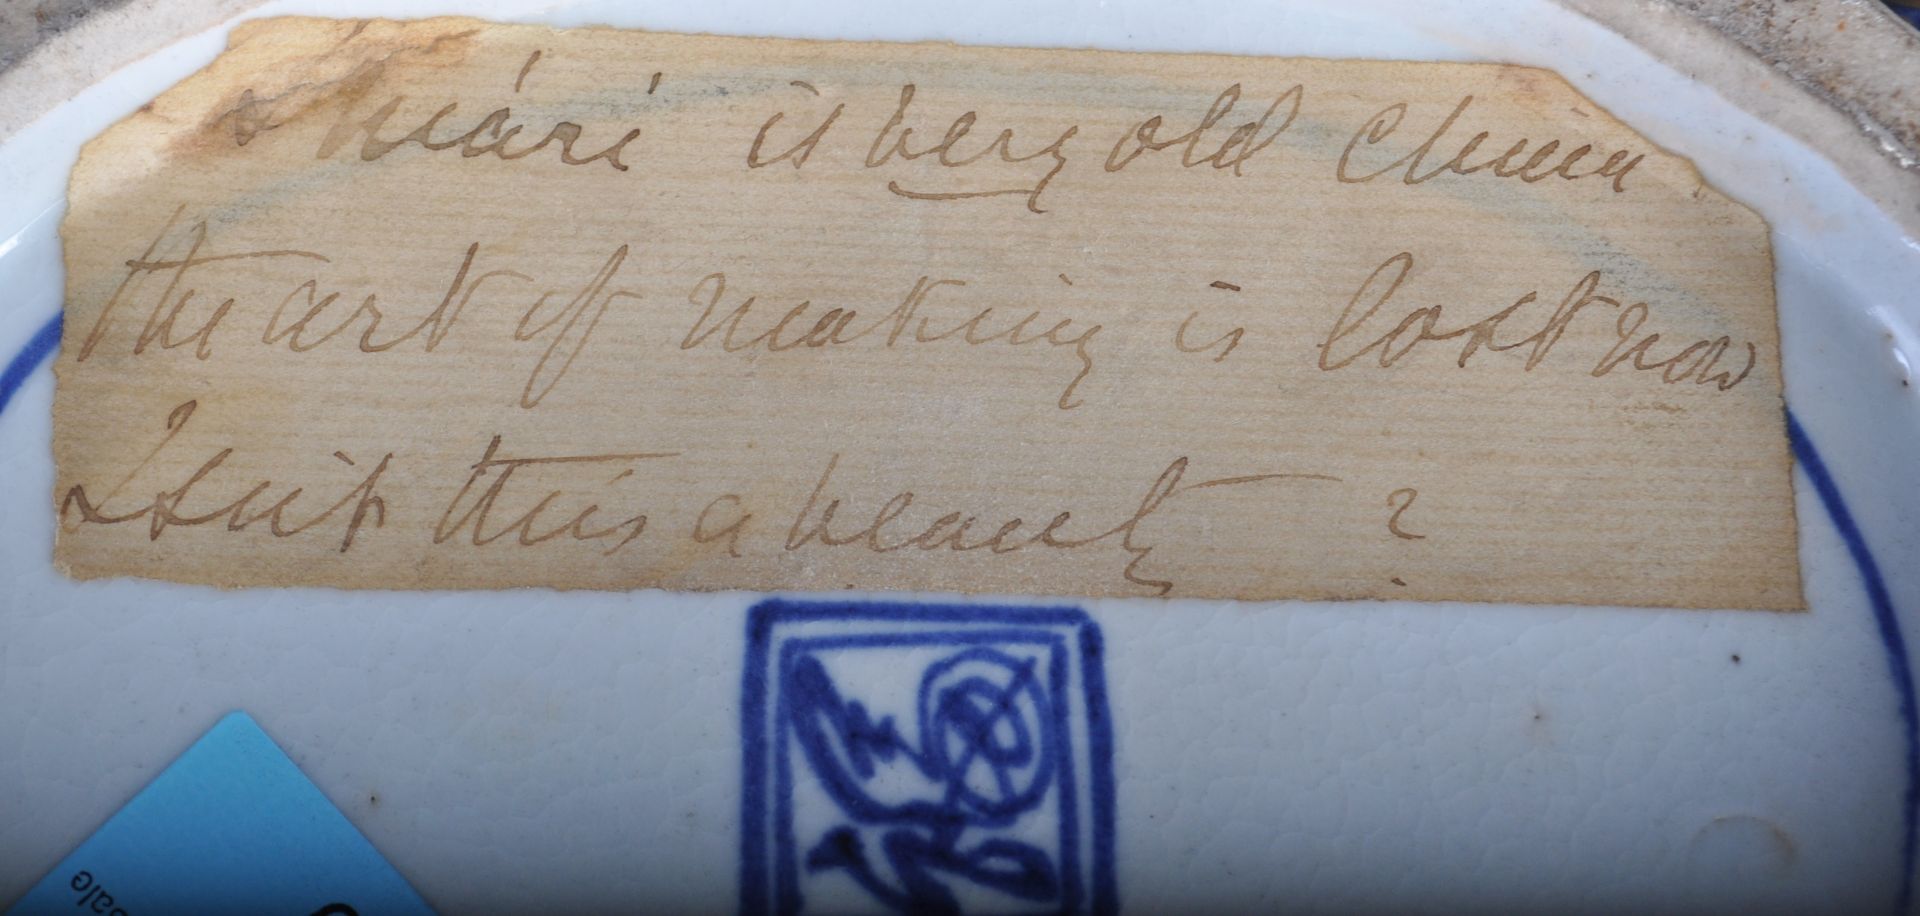 is very old china
the art of making is lost now
Isnit this a beauty ?
ale